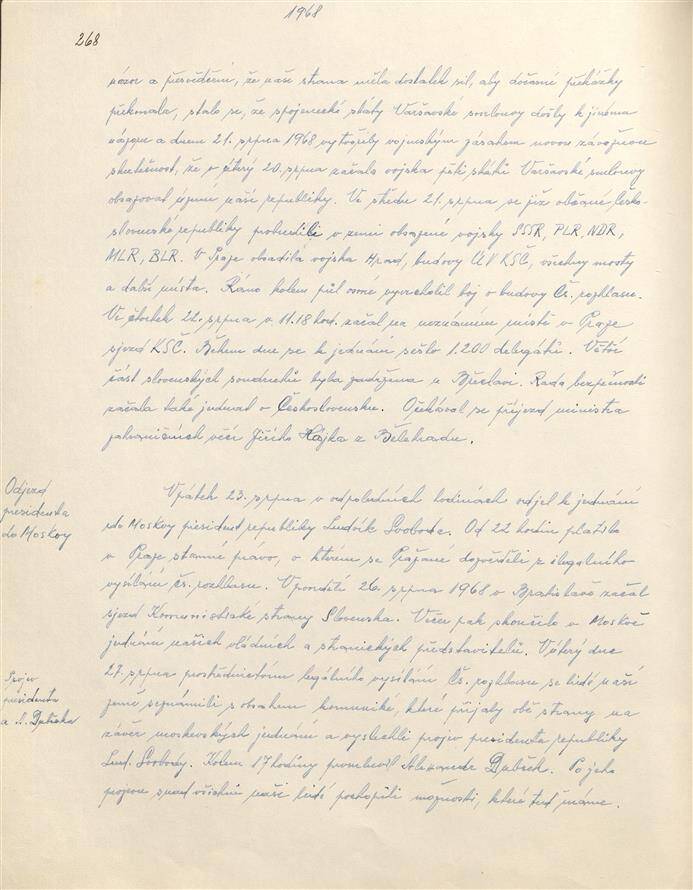 1968
268
názor a přesvědčení, že naše strana měla dostatek sil, aby dočasné překážky
překonala, stalo se, že spojenecké státy Varšavské smlouvy došly k jinému
názoru a dnem 21. srpna 1968 vytvořily vojenským zásahem novou závažnou
skutečnost, že v úterý 20. srpna začala vojska pěti států Varšavské smlouvy
obsazovat území naší republiky. Ve středu 21. srpna se již občané česko-
slovenské republiky probudili v zemi obsazené vojsky SSSR, PLR, NDR,
MLR, BLR. V Praze obsadila vojska Hrad, budovy ÚV KSČ, všechny mosty
a další místa. Ráno kolem půl osmé vyvrcholil boj o budovy Čs. rozhlasu.
Ve čtvrtek 22. srpna v 11.18 hod. začal na neznámém místě v Praze
sjezd KSČ. Během dne se k jednání sešlo 1.200 delegátů. Větší
část slovenských soudruhů byla zadržena u Břeclavi. Rada bezpečnosti
začala také jednat o Československu. Očekával se příjezd ministra
zahraničních věcí Jiřího Hájka z Bělehradu.
Odjezd
presidenta
do Moskvy
V pátek 23. srpna v odpoledních hodinách odjel k jednání
do Moskvy president republiky Ludvík Svoboda. Od 22 hodin platilo
v Praze stanné právo, o kterém se Pražané dozvěděli z ilegálního
vysílání čs. rozhlasu. V pondělí 26. srpna 1968 v Bratislavě začal
sjezd Komunistické strany Slovenska. Večer pak skončilo v Moskvě
jednání našich vládních a stranických představitelů. V úterý dne
27. srpna prostřednictvím legálního vysílání Čs. rozhlasu se lidé naší
země seznámili s obsahem komuniké, které přijaly obě strany na
závěr moskevských jednání a vyslechli projev presidenta republiky
Lud. Svobody. Kolem 17 hodiny promluvil Alexandr Dubček. Po jeho
projevu snad všichni naši lidé pochopili možnosti, které teď máme.
Projev
presidenta
a A. Dubčeka